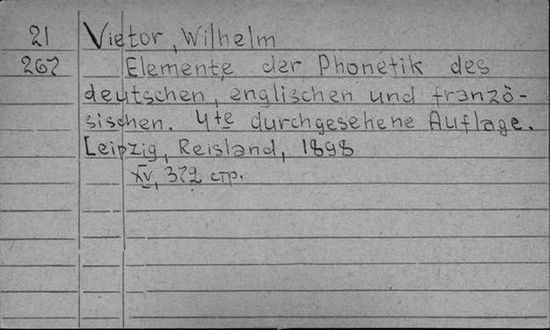 21 Vietor, Wilhelm
267 Elemente der Phonetik des
deutschen, englischen und franzö-
sischen. 4te durchgesehene Auflage.
Leipzig, Reisland, 1898
XV, 372 стр.